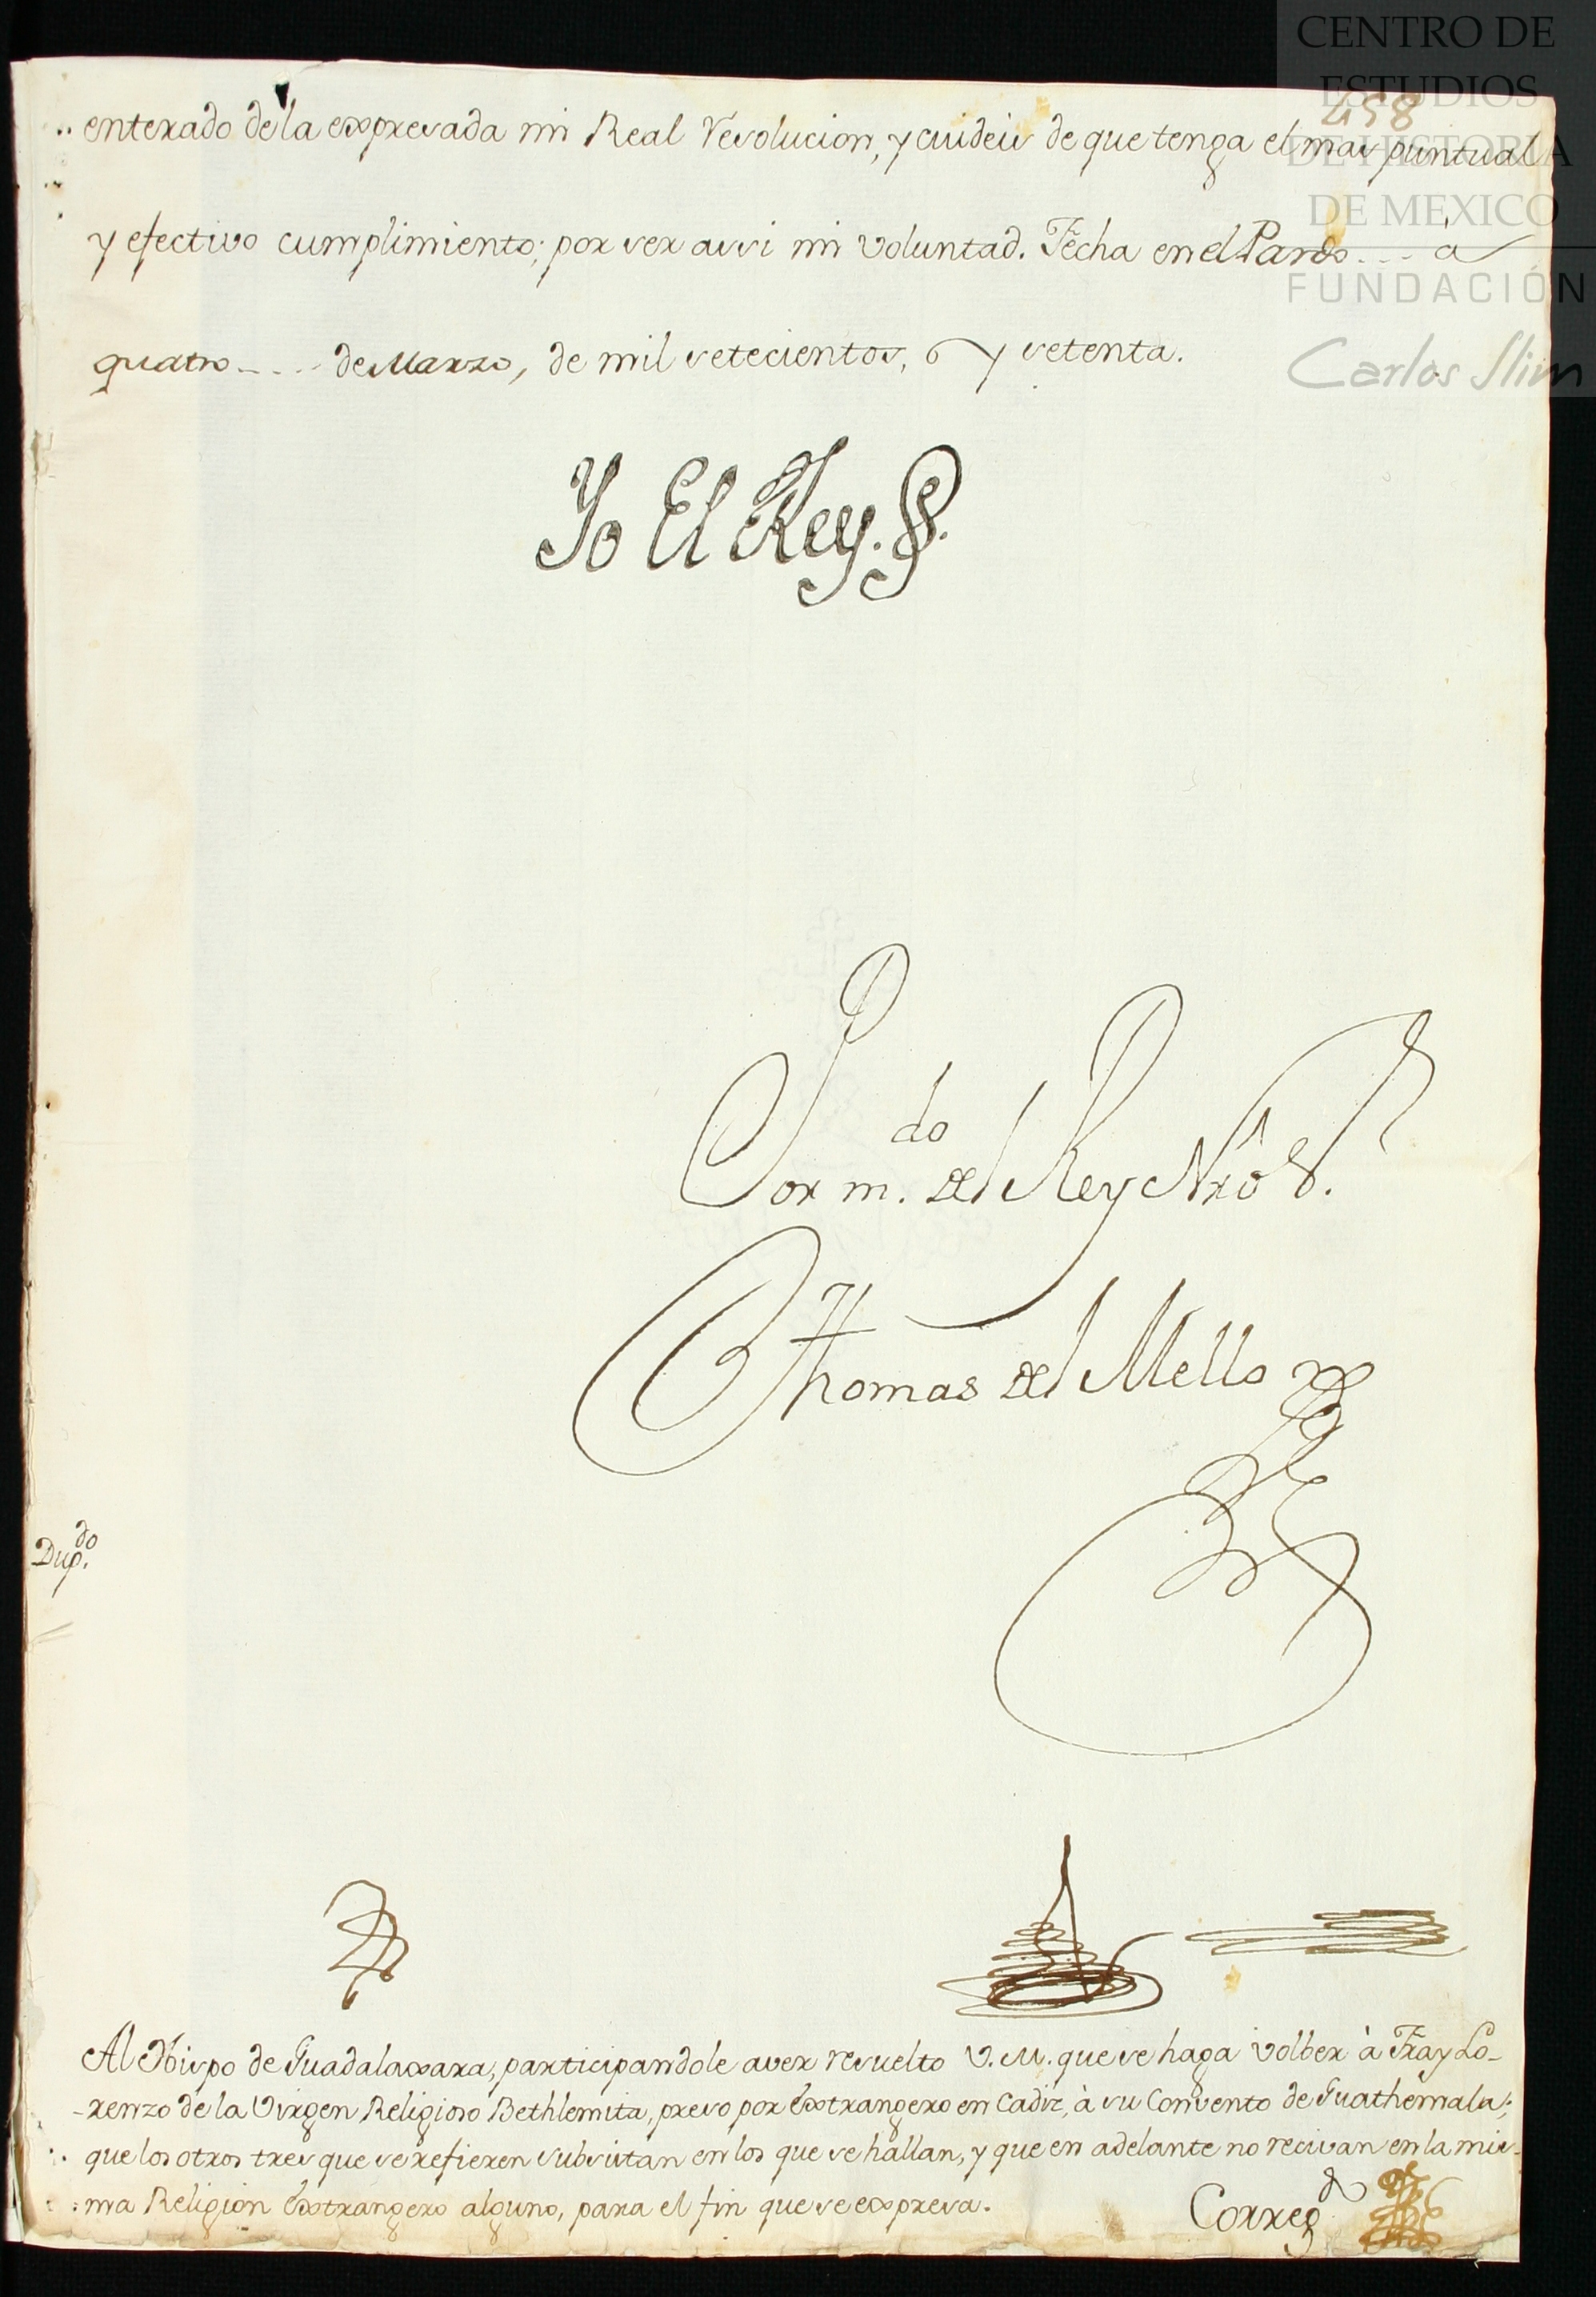 CENTRO DE
ESTUDIOS
DE HISTORIA
DE MEXICO
FUNDACIÓN
Carlos Slim
458
enterado de la expresada mi Real resolucion, y cuideis de que tenga el mas puntual
y efectivo cumplimiento; por ser assi mi voluntad. Fecha en el Pardo... à
quatro.... de Marzo, de mil setecientos, y setenta.
Yo El Rey.
Por m.do del Rey Nrô S.r
Thomas del Mello
Dup.do
Al Obispo de Guadalaxara, participandole aver resuelto V. M. que se haga volber à Fray Lo-
-renzo de la Virgen Religioso Bethlemita, preso por Extrangero en Cadiz, à su Convento de Guathemala;
que los otros tres que se refieren subsistan en los que se hallan, y que en adelante no recivan en la mis-
ma Religion Extrangero alguno, para el fin que se expresa.
Correg.da